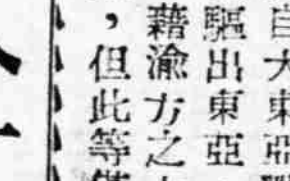 自大東亞
驅出東亞
藉渝方之
，但此等